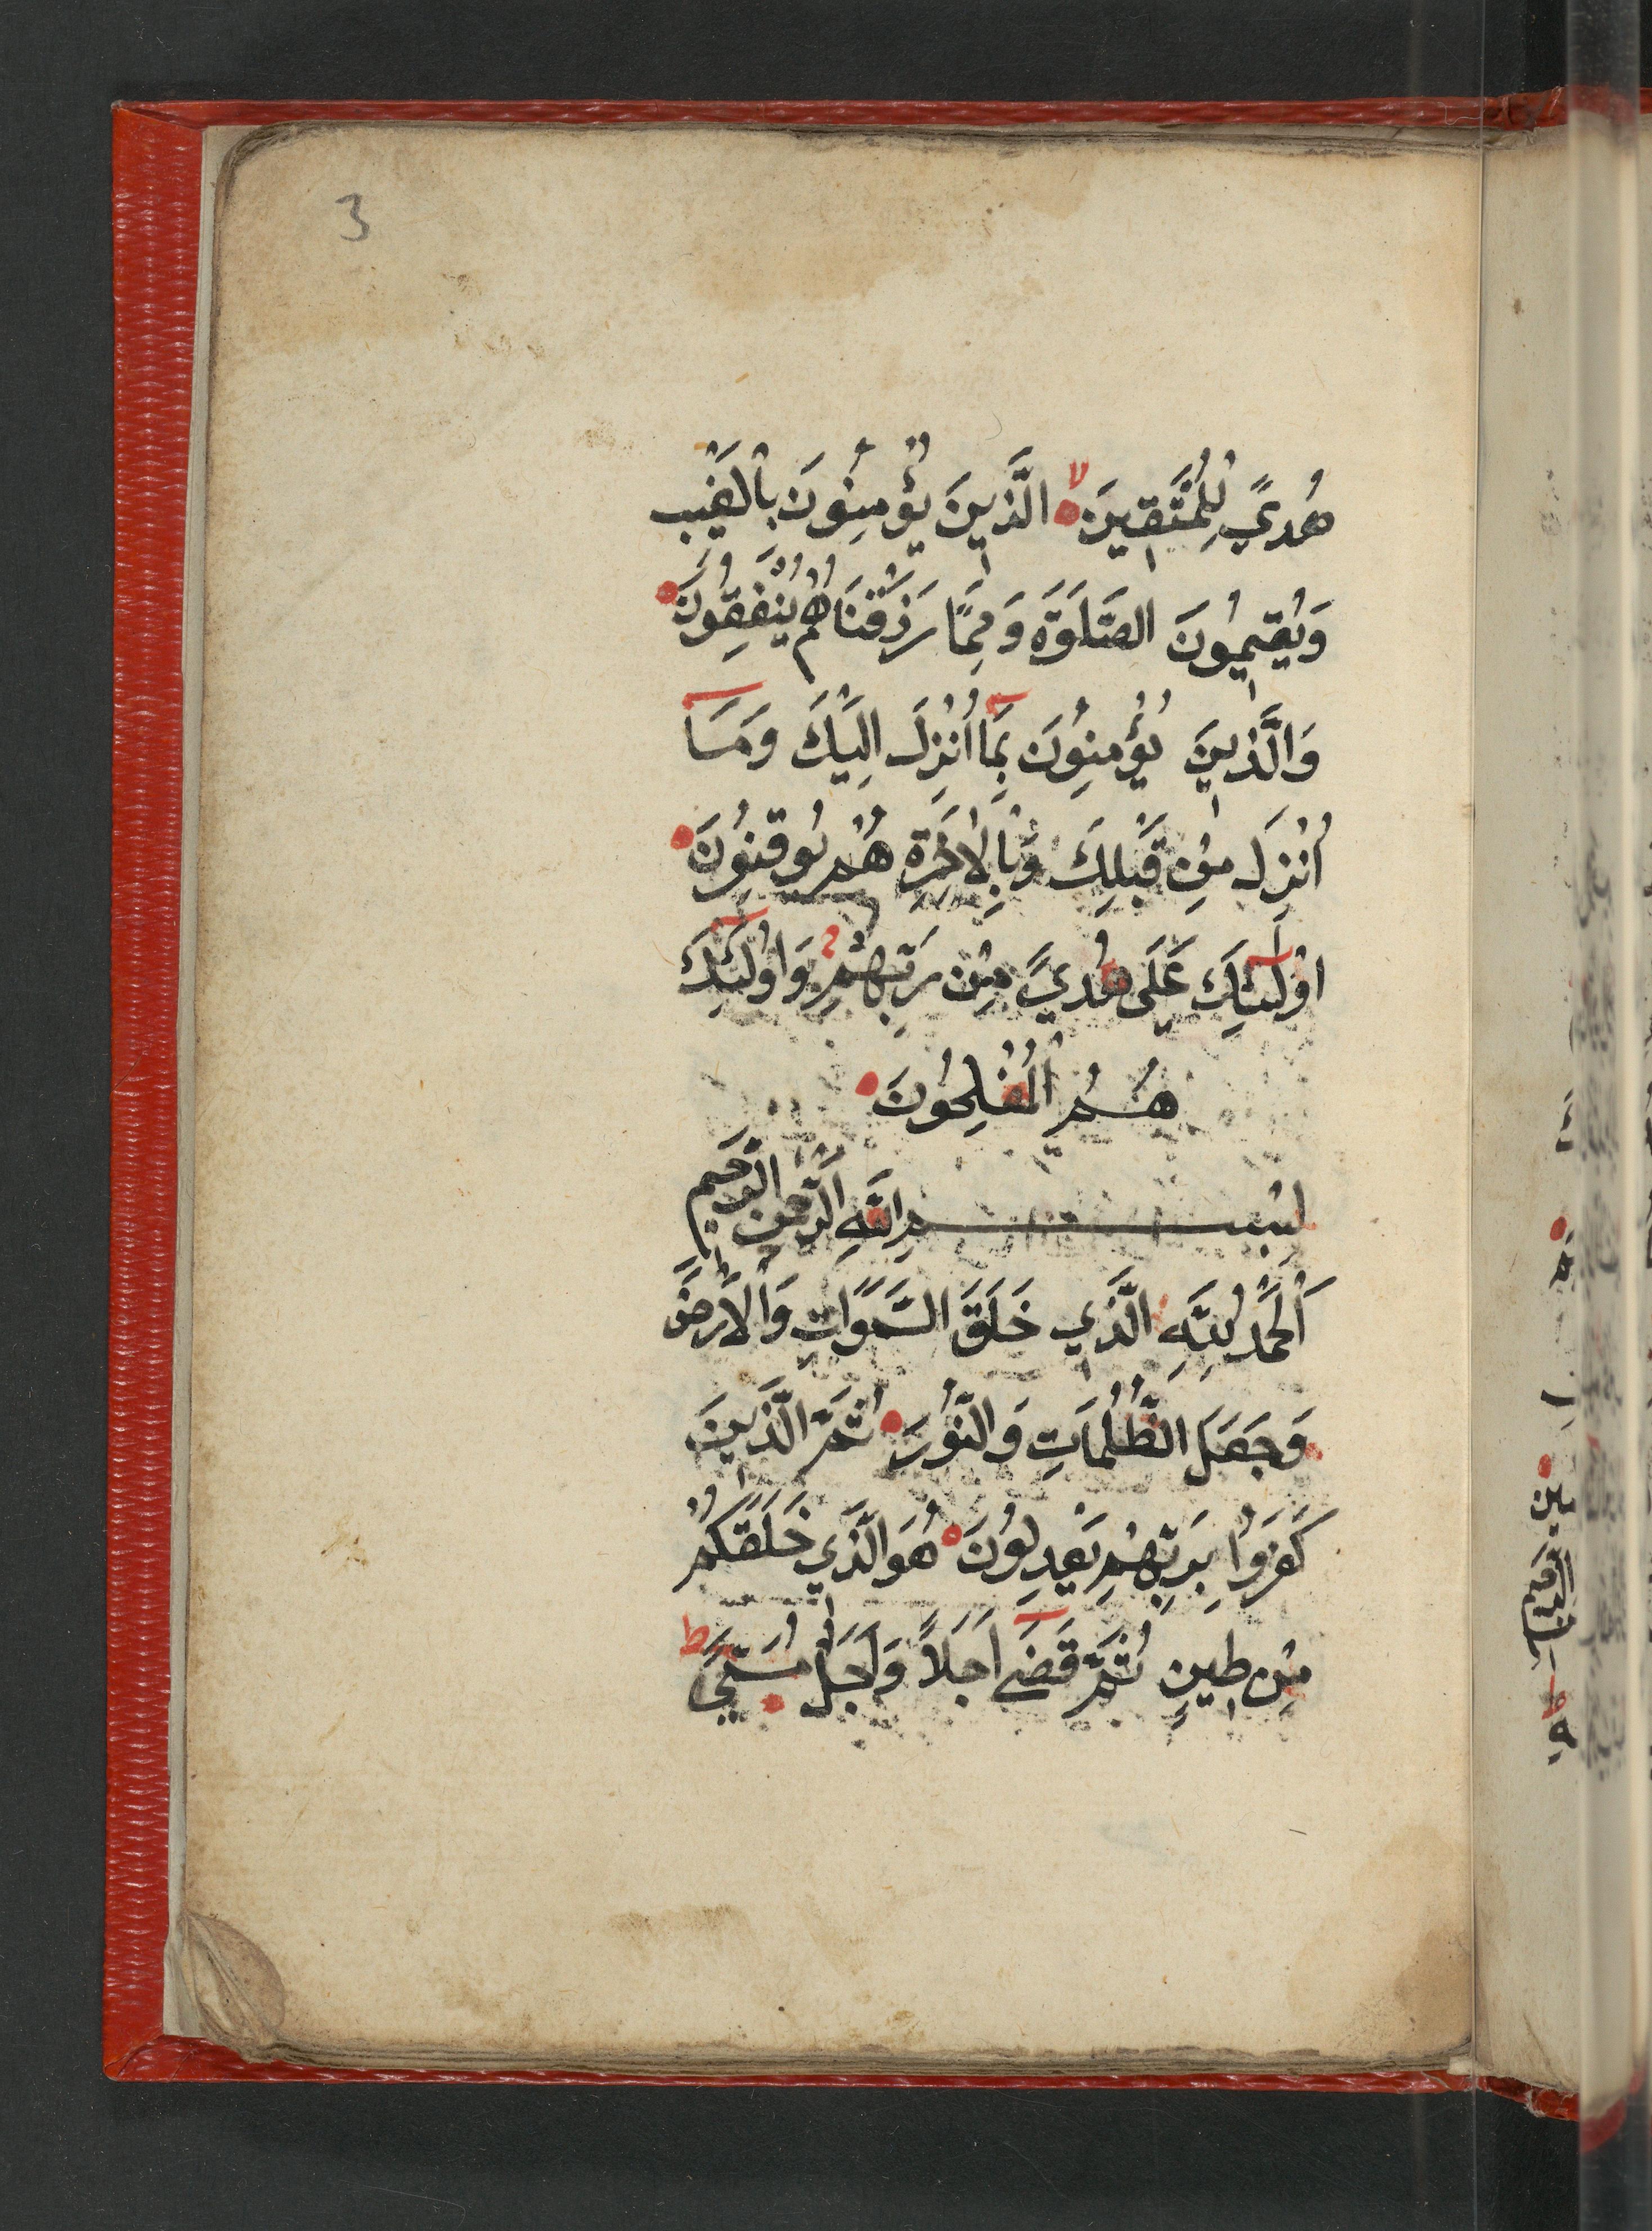 3
هُدًي لِلْمُتَّقِينَ لا الَّذِينَ يُؤْمِنُونَ بِالْغَيْبِ
وَيُقِيمُونَ الصَّلَوٰةَ وَمِمَّا رَزَقْنَاهُمْ يُنْفِقُونَ
وَالَّذِينَ يُؤْمِنُونَ بِمَا اُنْزِلَ اِلَيْكَ وَمَا
اُنْزِلَ مِنْ قَبْلِكَ وَبِالْاٰخِرَةِ هُمْ يُوقِنُونَ
اُولٰئِكَ عَلَى هُدًي مِنْ رَبِّهِمْ وَاُولٰئِكَ
هُمُ الْمُفْلِحُونَ
بِسْمِ اللَّهِ الرَّحْمٰنِ الرَّحِيمِ
اَلْحَمْدُ لِلَّهِ الَّذِي خَلَقَ السَّمَوَاتِ وَالْاَرْضَ
وَجَعَلَ الظُّلُمَاتِ وَالنُّورَ ثُمَّ الَّذِينَ
كَفَرُوا بِرَبِّهِمْ يَعْدِلُونَ هُوَ الَّذِي خَلَقَكُمْ
مِنْ طِينٍ ثُمَّ قَضَى اَجَلًا وَاَجَلٌ مُسَمًّي ط